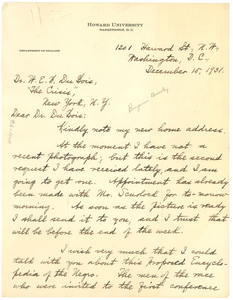 HOWARD UNIVERSITY
WASHINGTON, D.C.
DEPARTMENT OF ZOOLOGY
1201 Harvard St., N.W.
Washington, D.C.
December 15, 1931.
Dr. W. E. B. Du Bois,
The Crisis,
New York, N.Y.
Dear Dr. Du Bois:
Kindly note my new home address.
At the moment I have not a
recent photograph; but this is the second
request I have received lately, and I am
going to get one. Appointment has already
been made with Mr. Scurlock for to-morrow
morning. As soon as the picture is
ready I shall send it to you, and I trust that
will be before the end of the week.
I wish very much that I could
talk with you about this proposed Encyclo-
pedia of the Negro. The men of the race
who were invited to the first conference